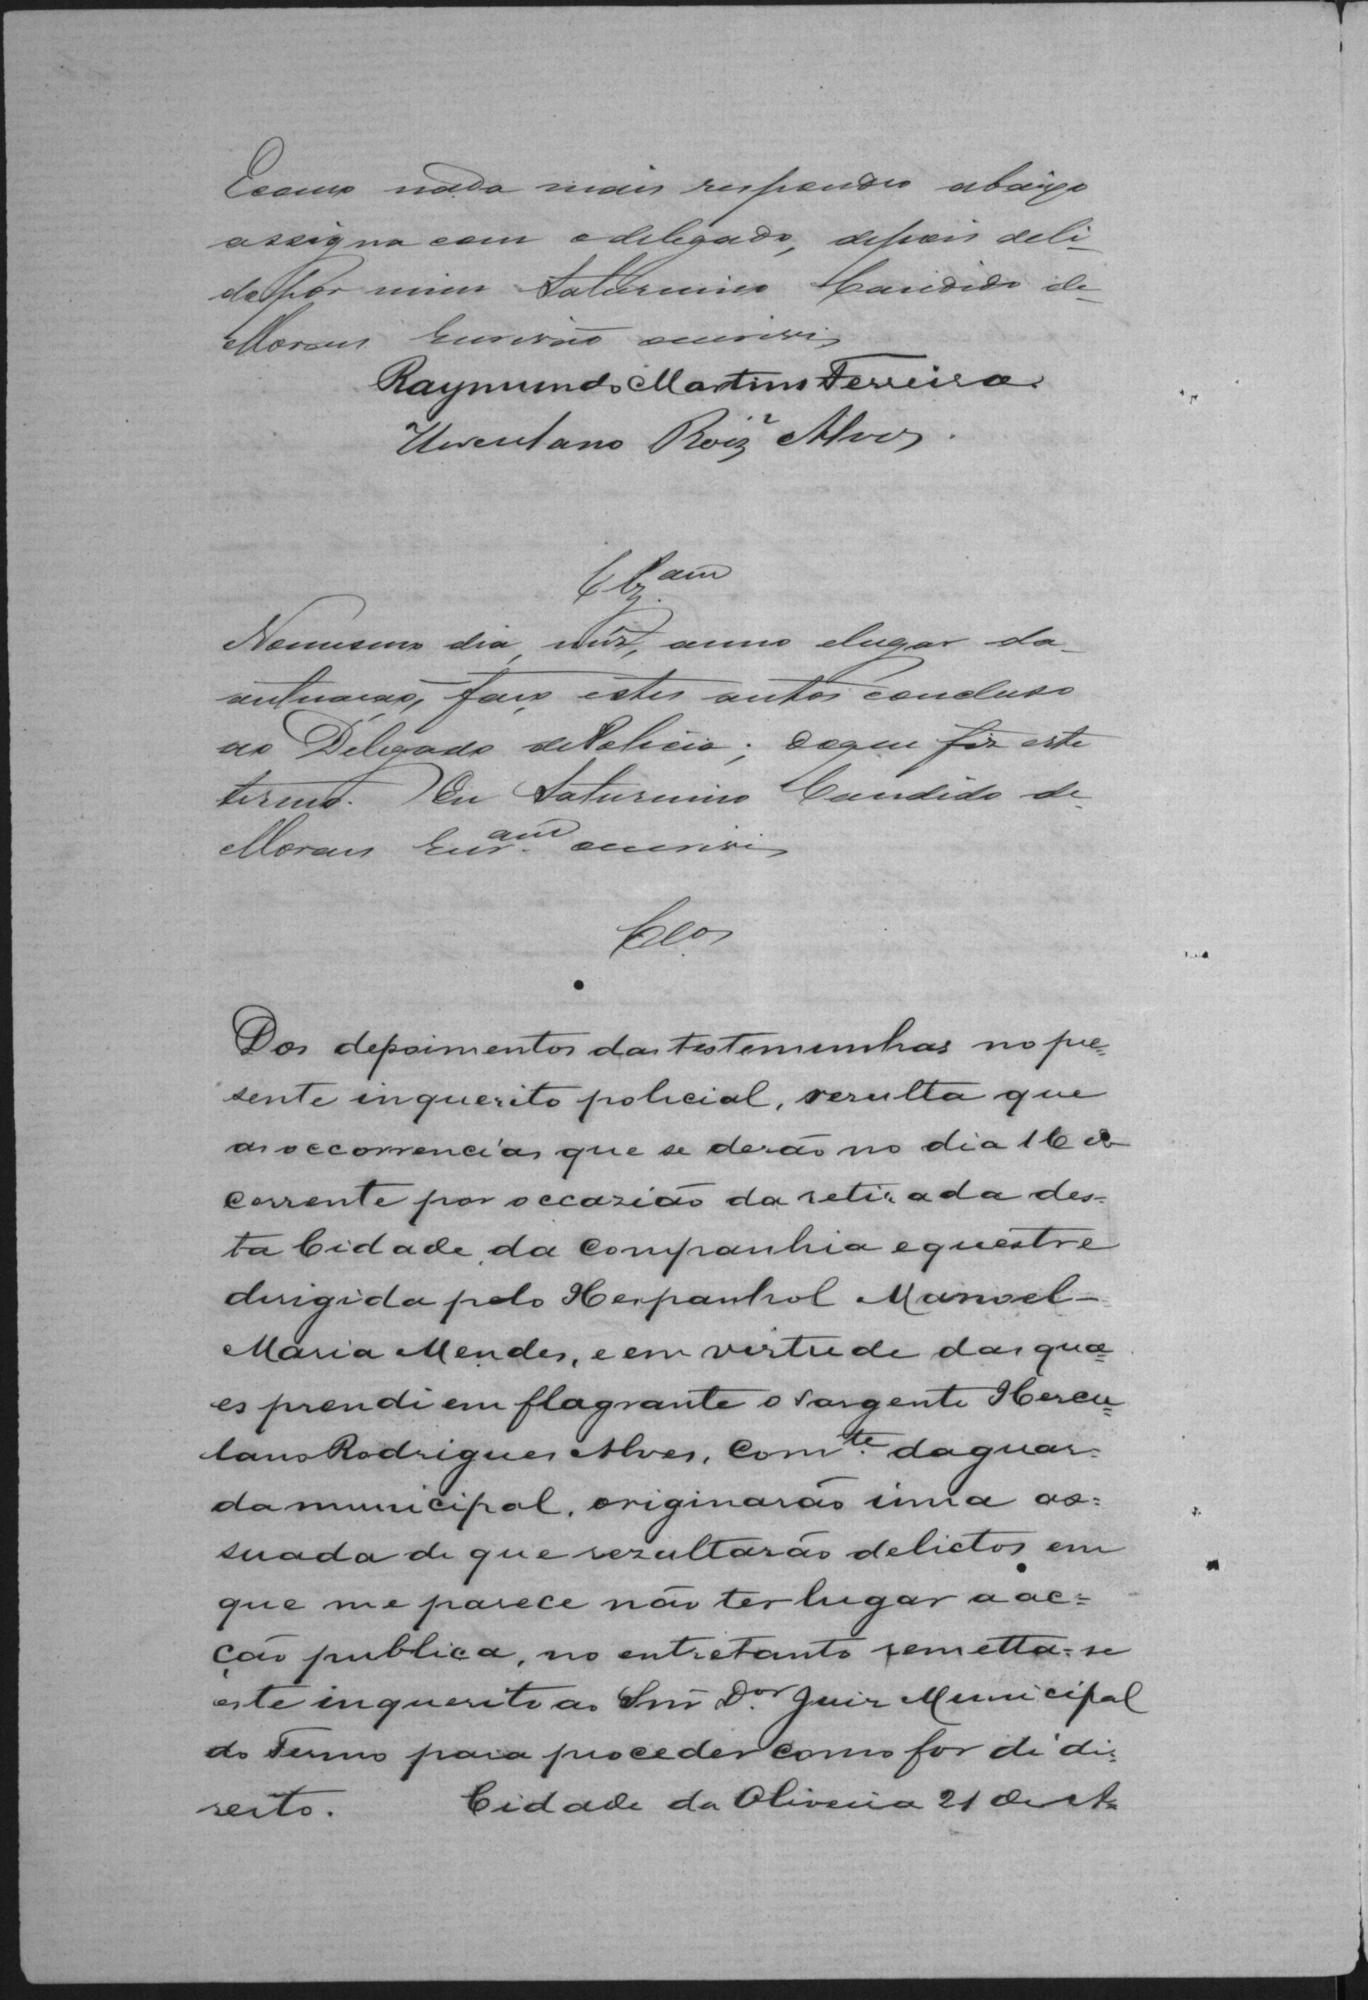 Ecomo nada mais respondeo abaixo
assigna com odelegado, depois deli-
do por mim Saturnino Candido de
Moraes Escrivão oescrivi
Raymundo Martins Ferreira.
Herculano Roiz Alves.
Clzam
Nomesmo dia, mez, anno elugar da
autuacão, faço estes autos concluso
ao Delegado dePolicia; doque fiz este
termo. Eu Saturnino Candido de
Moraes Escr.am oescrivi
Clos
Dos depoimentos das testemunhas no pre=
sente inquerito policial, resulta que
as occorrencias que se derão no dia 16 do
corrente por occazião da retirada des=
ta Cidade da Companhia equestre
dirigida pelo Hespanhol Manoel
Maria Mendes, e em virtude das qua=
es prendi em flagrante o sargento Hercu=
lano Rodrigues Alves, Comte. da guar=
da municipal, originarão uma as=
suada de que rezultarão delictos em
que me parece não ter lugar a ac=
ção publica, no entretanto remetta-se
este inquerito ao Snr Dor. Juiz Municipal
do Termo para proceder como for de di=
reito. Cidade da Oliveira 21 de